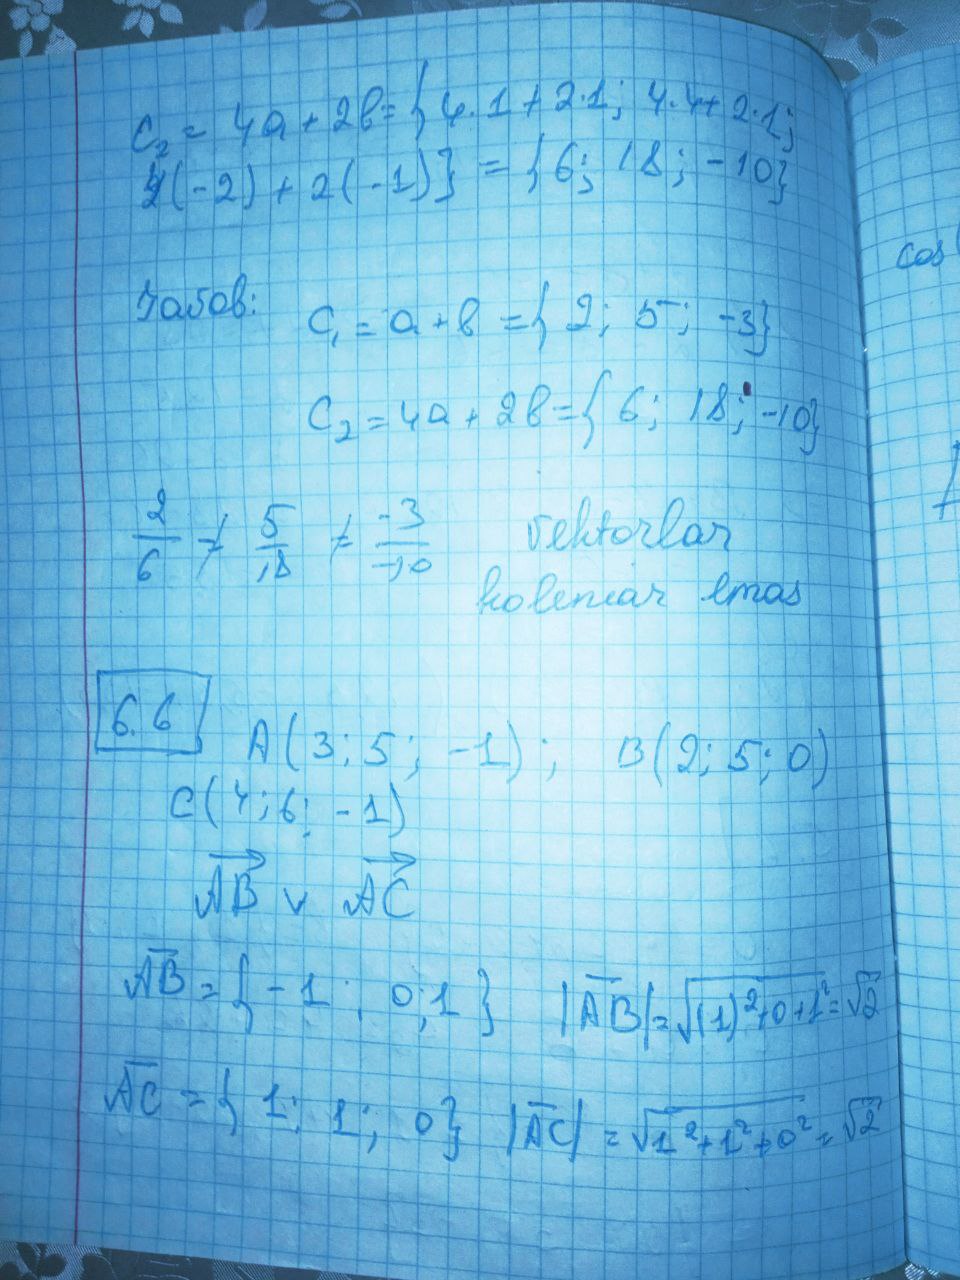 C₂ = 4a + 2b = {4·1 + 2·1; 4·4 + 2·1;
4(-2) + 2(-1)} = {6; 18; -10}
Javob:
C₁ = a + b = {2; 5; -3}
C₂ = 4a + 2b = {6; 18; -10}
2/6 ≠ 5/18 ≠ -3/-10 vektorlar
koleniar emas
6.6
A(3; 5; -1); B(2; 5; 0)
C(4; 6; -1)
AB v AC
AB = {-1; 0; 1} |AB| = √(1)²+0+1² = √2
AC = {1; 1; 0} |AC| = √1²+1²+0² = √2
cos(